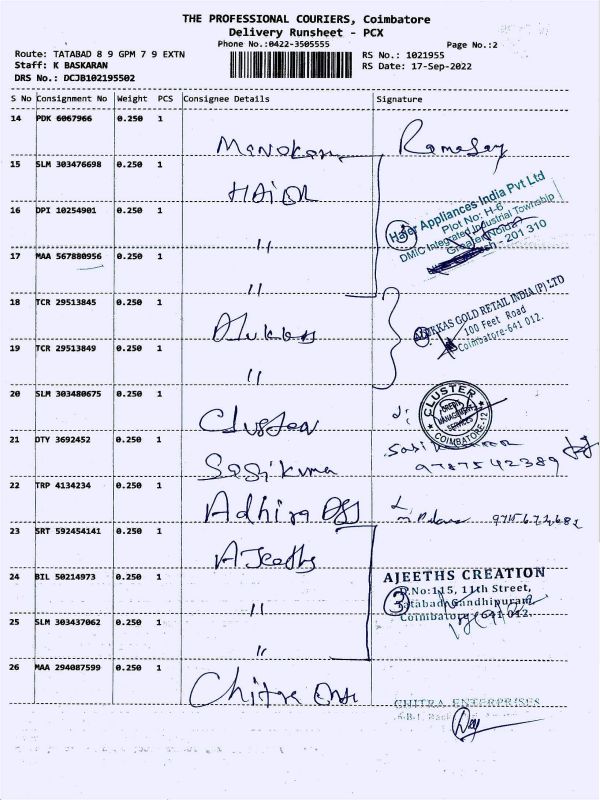 THE PROFESSIONAL COURIERS, Coimbatore
Delivery Runsheet - PCX
Phone No.:0422-3505555
Page No.:2
Route: TATABAD 8 9 GPM 7 9 EXTN
Staff: K BASKARAN
DRS No.: DCJB102195502
RS No.: 1021955
RS Date: 17-Sep-2022
S No Consignment No Weight PCS Consignee Details Signature
14 PDK 6067966 0.250 1
15 SLM 303476698 0.250 1
HAiOR
16 DPI 10254901 0.250 1
"
Haier Appliances India Pvt Ltd
Plot No: H-6
DMIC Integrated Industrial Township
Greater Noida
- 201 310
3
17 MAA 567880956 0.250 1
"
18 TCR 29513845 0.250 1
GOLD RETAIL INDIA (P) LTD
100 Feet Road
Coimbatore-641 012.
19 TCR 29513849 0.250 1
"
20 SLM 303480675 0.250 1
Cluster
CLUSTER
CREDIT
MANAGEMENT
SERVICES
COIMBATORE-12
21 DTY 3692452 0.250 1
Sasikuma
9787542389
22 TRP 4134234 0.250 1
Adhira
23 SRT 592454141 0.250 1
AJeeths
24 BIL 50214973 0.250 1
"
AJEETHS CREATION
D.No:115, 11th Street,
Tatabad, Gandhipuram,
Coimbatore - 641 012.
3
25 SLM 303437062 0.250 1
"
26 MAA 294087599 0.250 1
Chitra
CHITRA ENTERPRISES